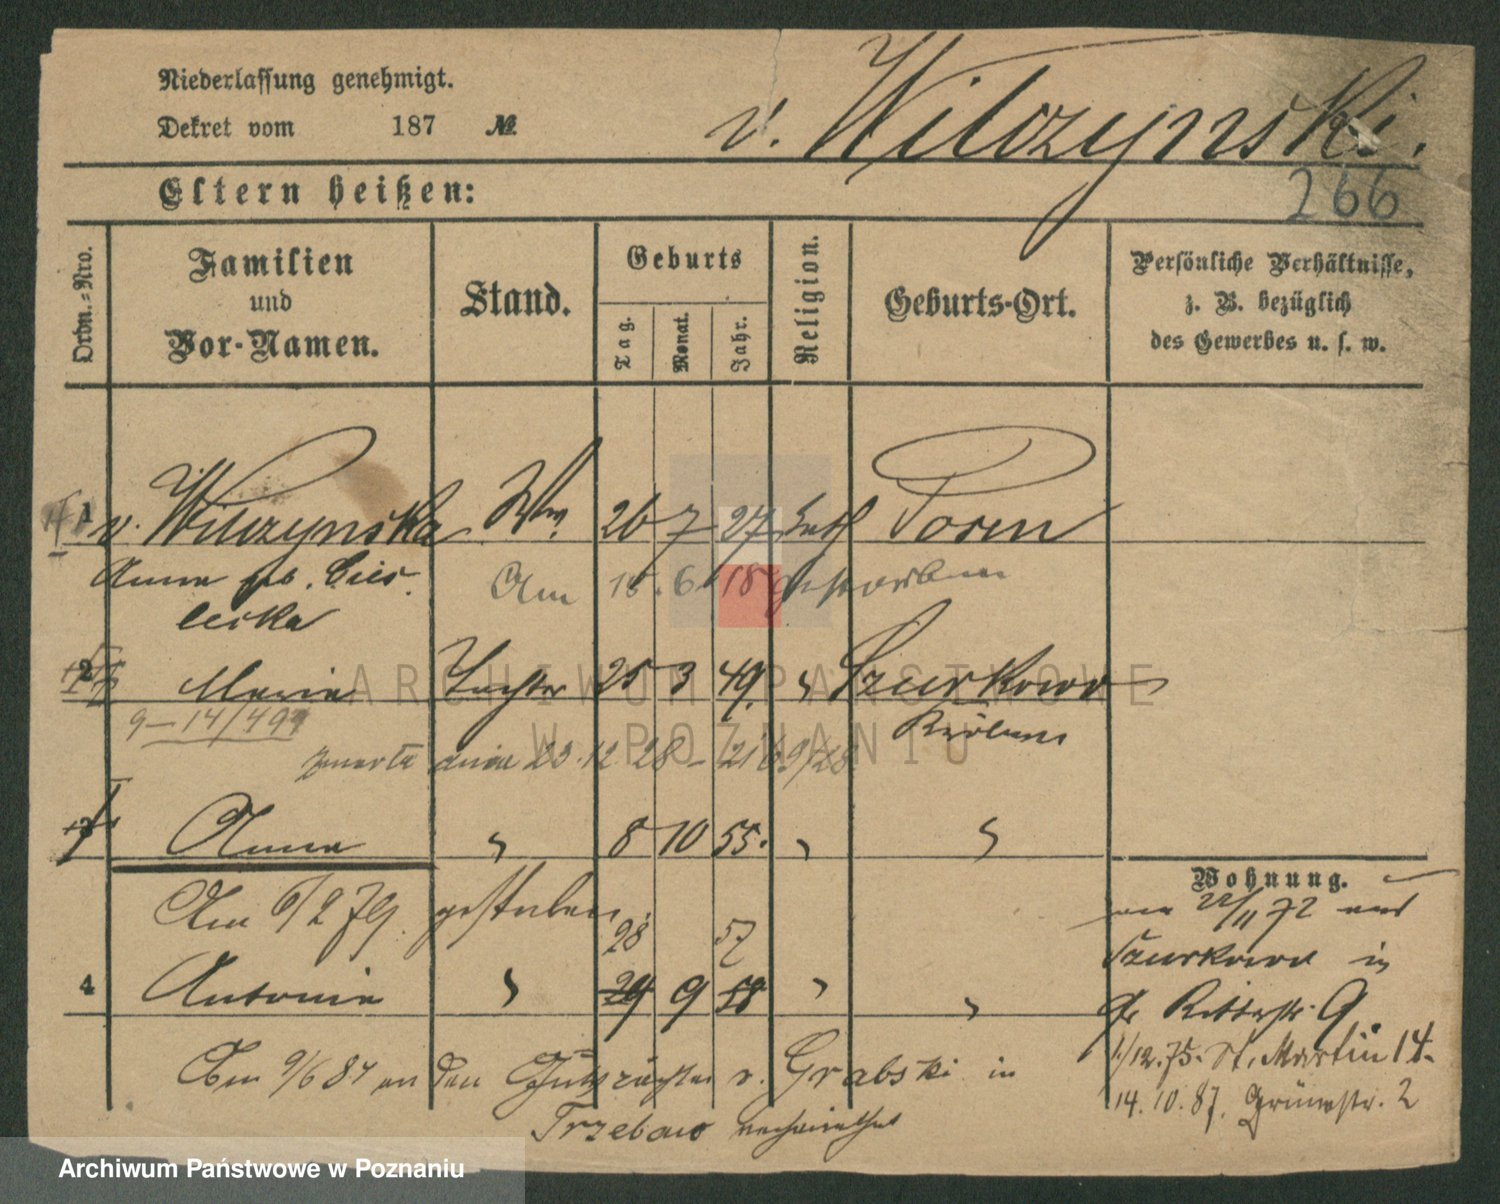 Niederlassung genehmigt.
Dekret vom 187 №
v. Wilczynski.
266
Eltern heißen:
Ordn.=Nro.
Familien und Vor-Namen.
Stand.
Geburts
Tag.
Monat.
Jahr.
Religion.
Geburts-Ort.
Persönliche Verhältnisse, z. B. bezüglich des Gewerbes u. s. w.
1 v. Wilczynska Ww. 26 7 27 kath Posen
Anna geb. Cies
lecka
Am 18. 6. 18 gestorben
2 Maria Tochter 25 3 49. " Szurkowo
9-14/494 Kröben
zmarła dnia 23.12 28
3 Anna " 8 10 55. " "
Am 6/2 79. gestorben.
28 57
4 Antonie " 29 9 58 " "
Am 9/6 84 an den Gutspächter v. Grabski in
Trzebaw verheirathet
Wohnung.
am 22/11 72 aus
Szurkowo in
gr Ritterstr. 9.
1/12.75. St. Martin 14.
14.10.87. Grünestr. 2
ARCHIWUM PAŃSTWOWE
W POZNANIU
Archiwum Państwowe w Poznaniu